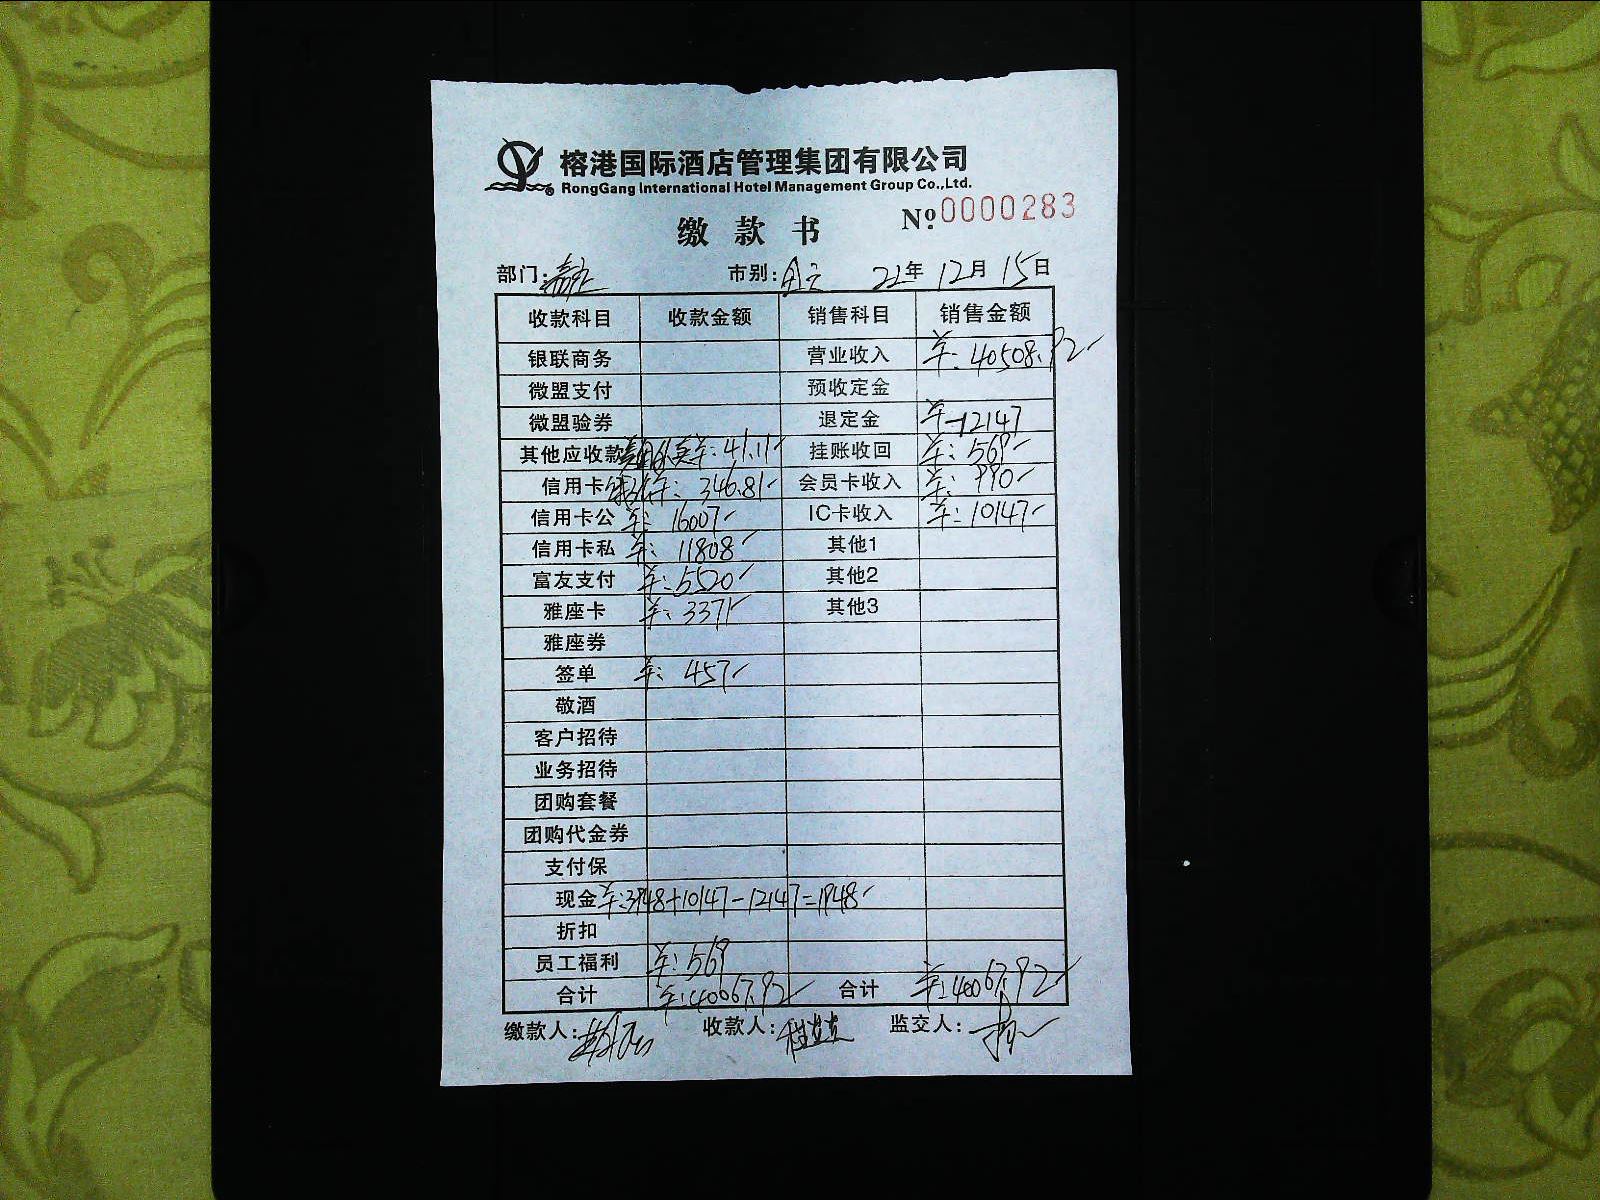 榕港国际酒店管理集团有限公司
RongGang International Hotel Management Group Co.,Ltd.
缴款书 No.0000283
部门: 市别: 22年12月15日
收款科目 收款金额 销售科目 销售金额
银联商务 营业收入 ¥:40508.92
微盟支付 预收定金
微盟验券 退定金 ¥-12147
其他应收款 ¥:41.11 挂账收回 ¥:569
信用卡 ¥:346.81 会员卡收入 ¥:990
信用卡公 ¥:16007 IC卡收入 ¥:10147
信用卡私 ¥:11808 其他1
富友支付 ¥:5520 其他2
雅座卡 ¥:3371 其他3
雅座券
签单 ¥:457
敬酒
客户招待
业务招待
团购套餐
团购代金券
支付保
现金 ¥:3948+10147-12147=1948
折扣
员工福利 ¥:569
合计 ¥:40067.92 合计 ¥:40067.92
缴款人: 收款人: 监交人: